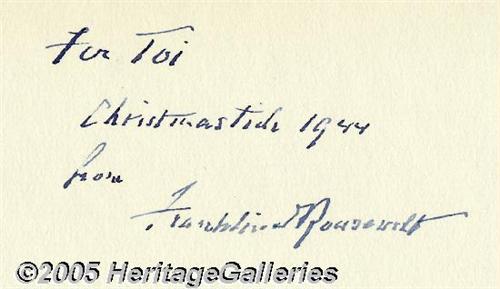 For Toi
Christmastide 1944
from
Franklin D Roosevelt
©2005 HeritageGalleries